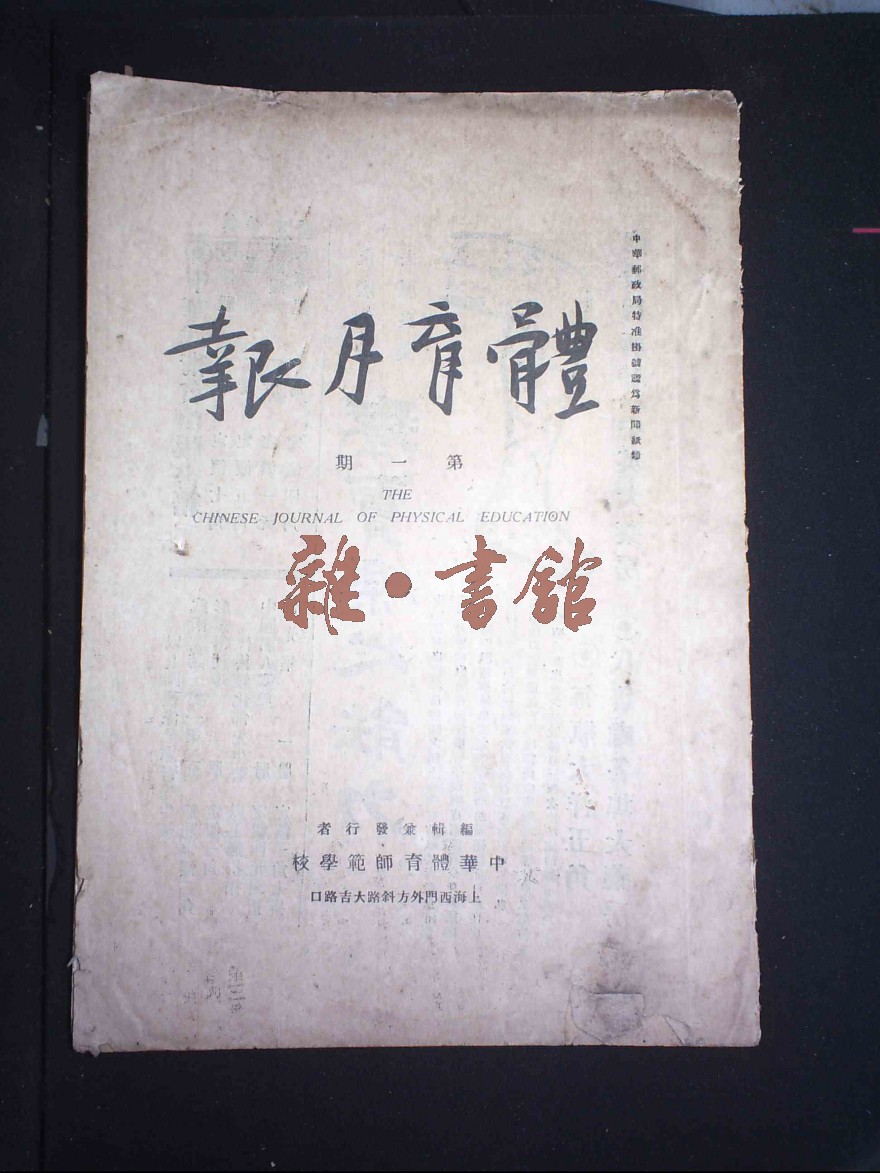 中華郵政局特准掛號認爲新聞紙類
體育月報
第一期
THE
CHINESE JOURNAL OF PHYSICAL EDUCATION
雜·書館
編輯兼發行者
中華體育師範學校
上海西門外方斜路大吉路口